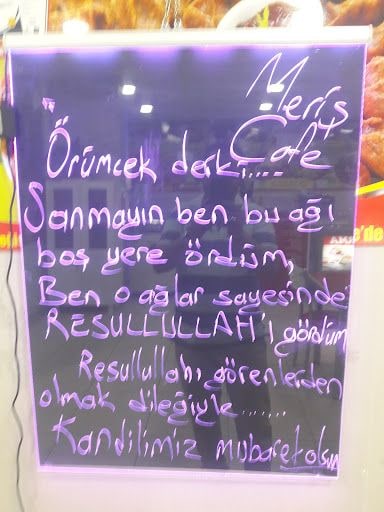 Meriş
Cafe
" Örümcek derki....
Sanmayın ben bu ağı
boş yere ördüm,
Ben o ağlar sayesinde
RESULLULLAH'ı gördüm
Resullullahı görenlerden
olmak dileğiyle .......
Kandilimiz mübarek olsun